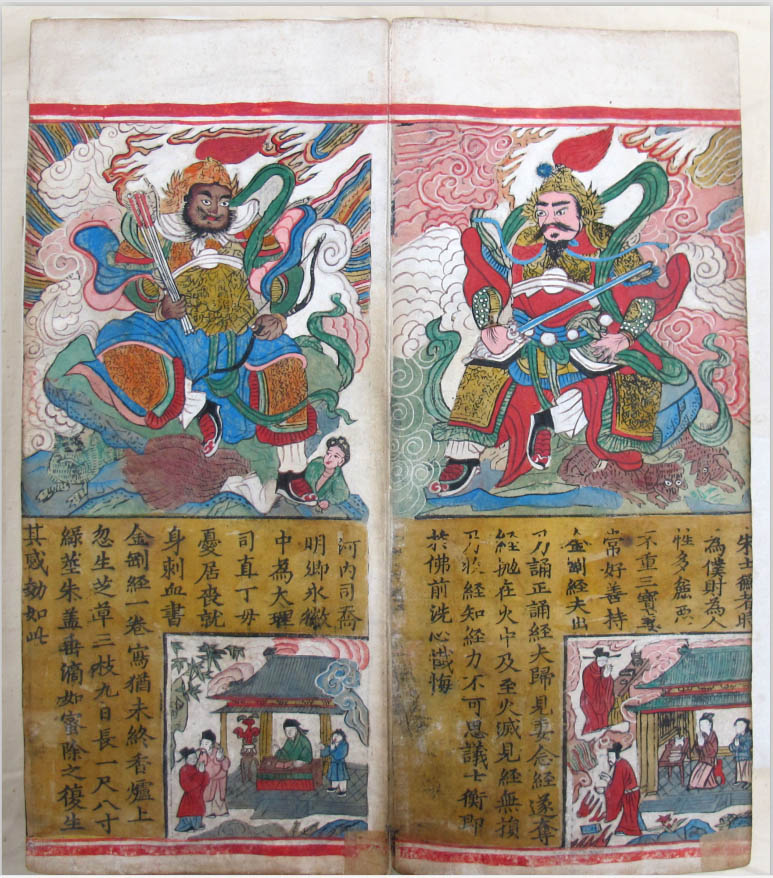 朱士衡者時
為僕財為人
性多
不重三寶妻
常好善持
金剛經夫出
乃誦正誦經夫歸見妻念經遂奪
經拋在火中及至火滅見經無損
經知經力不可思議士衡即
於佛前洗心懺悔
河内司喬
明卿永徽
中為大理
司直丁母
憂居喪就
身刺血書
金剛經一卷寫猶未終香爐上
忽生芝草三枝九日長一尺八寸
緑莖朱蓋垂滴如蜜除之復生
其感効如此